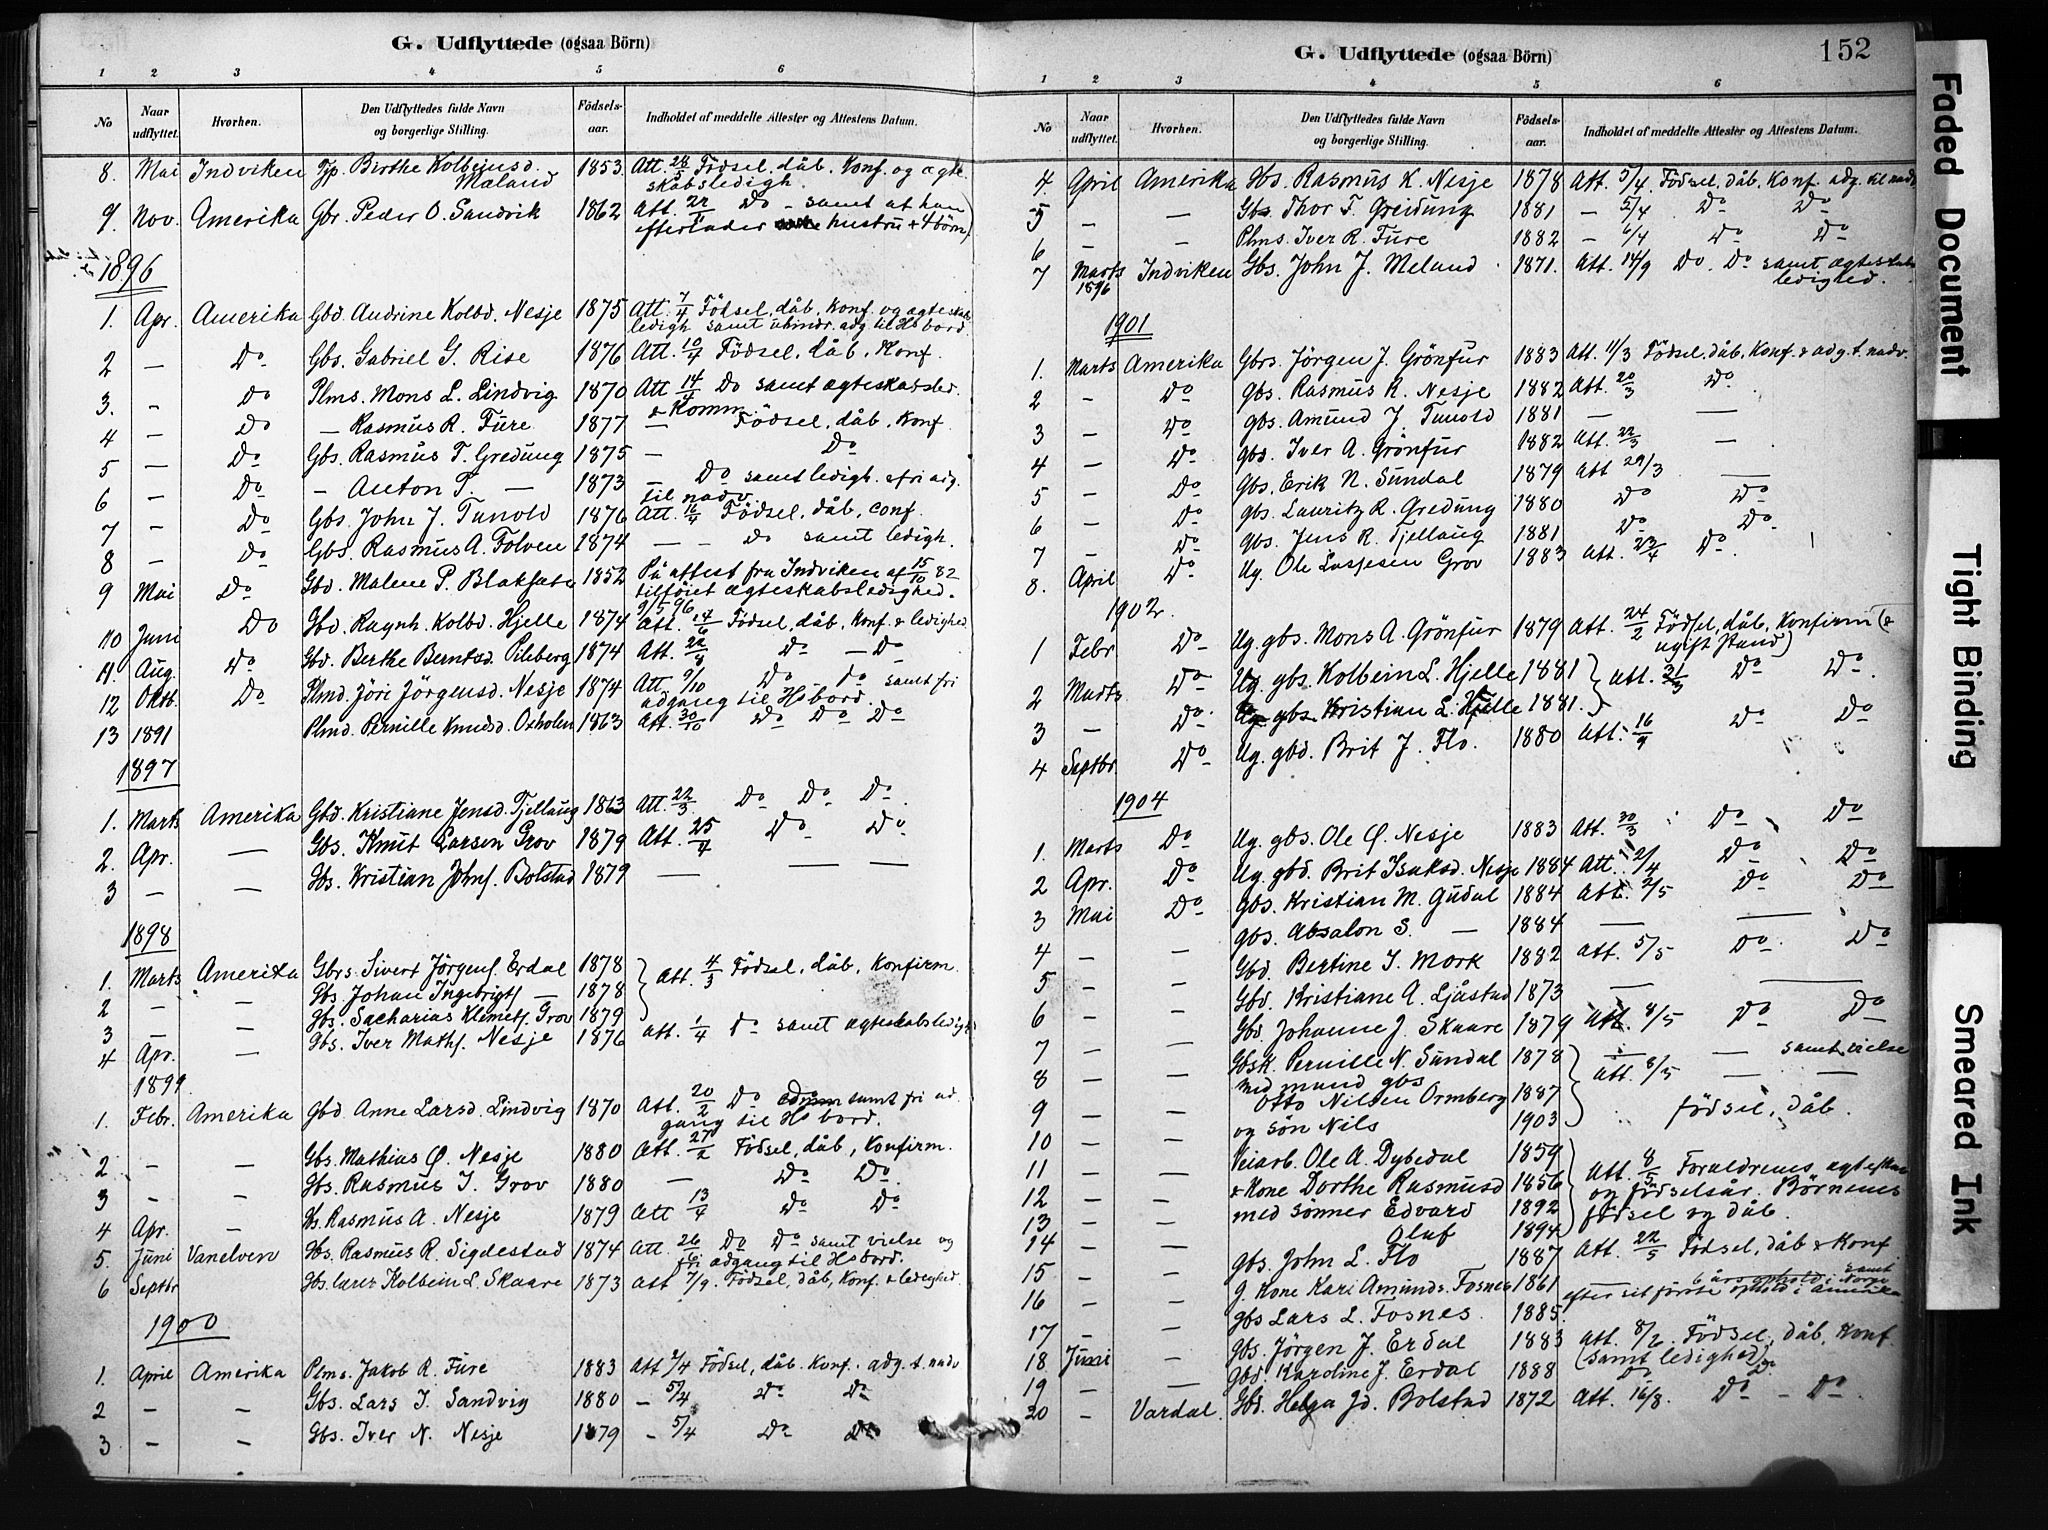 G. Udflyttede (ogsaa Börn)
1 2 3 4 5 6
No Naar udflyttet. Hvorhen. Den Udflyttedes fulde Navn og borgerlige Stilling. Födsels-aar. Indholdet af meddelte Attester og Attestens Datum.
8. Mai Indviken Tjp. Birthe Kolbeinsd. Mæland 1853 Att. 28/5 Födsel, dåb, Konf. og ægte-
skabsledigh.
9. Nov. Amerika Gbr. Peder O. Sandvik 1862 Att. 22/11 Do - samt at han
efterlader hustru + 4 börn)
1896
1. Apr. Amerika Gbd. Andrine Kolbd. Nesje 1875 Att. 7/4 Födsel, dåb, konf. og ægteskabs-
ledigh samt uhindr. adg. til Hs bord
2 — Do Gbs. Gabriel G. Rise 1876 Att. 10/4 Födsel, dåb, Konf.
3. - Do Plms. Mons L. Lindvig 1870 Att 14/4 Do samt ægteskabsled.
& Komm.
4 - Do — Rasmus R. Fure 1877 — Födsel, dåb, Konf.
5 — Do Gbs. Rasmus T. Gredung 1875 — Do
6 - Do — Anton T. — 1873 — Do samt ledigh. & fri adg.
til nadv.
7 - Do Gbs. John J. Tunold 1876 Att. 16/4 Födsel, dåb, conf.
8 — Do Gbs. Rasmus A. Folven 1874 — - Do samt ledigh.
9 Mai Do Gbd. Malene P. Blaksæte 1852 På attest fra Indviken af 15/10 82
tilföiet ægteskabsledighed.
9/5 96
10 Juni Do Gbd. Ragnh. Kolbd. Hjelle 1874 Att. 14/6 Födsel, dåb, Konf. & ledighed
11. Aug. Do Gbd. Berthe Berntsd. Pileberg 1874 Att. 22/8 Do — Do
12 Oktb. Do Plmd. Jöri Jörgensd. Nesje 1874 Att. 9/10 Do Do samt fri
adgang til Hs bord.
13 1891 Plmd. Pernille Knudsd. Osholen 1863 Att. 30/10 Do Do Do
1897
1. Marts Amerika Gbd. Kristiane Jensd. Tjellaug 1863 Att. 22/3 Do Do Do
2. Apr. — Gbs. Knut Larsen Grov 1879 Att. 25/4 Do Do
3 — — Gbs. Kristian Johns. Bolstad 1879 — — —
1898
1. Marts Amerika Gbrs. Sivert Jörgens. Erdal 1878 } Att. 4/3 Födsel, dåb, Konfirm.
2 — - Gbs. Johan Ingebrigts. — 1878
3 — - Gbs. Sacharias Klemets. Grov 1879
4 Apr. — Gbs. Iver Maths. Nesje 1876 Att. 1/4 Do samt ægteskabsledigh
1899
1. Febr. Amerika Gbd. Anne Larsd. Lindvig 1870 Att. 20/2 Do samt fri ad-
gang til Hs bord.
2 — — Gbs. Mathias Ø. Nesje 1880 Att. 27/2 Födsel, dåb, Konfirm.
3 - - Gbs. Rasmus I. Grov 1880 — Do Do
4 Apr. — Gbs. Rasmus A. Nesje 1879 Att 13/4 Do Do
5. Juni Vanelven Gbs. Rasmus R. Sigdestad 1874 Att. 26/6 Do Do samt vielse og
fri adgang til Hs bord.
6 Septbr Gbs. Kolbein L. Skaare 1873 Att 7/9. Födsel, dåb, Konf. & ledighed.
1900
1. April Amerika Plms. Jakob R. Fure 1883 Att 2/4 Födsel, dåb. Konf. adg. t. nadv
2 - - Gbs. Lars I. Sandvig 1880 — 5/4 Do Do
3 - - Gbs. Iver N. Nesje 1879 - 5/4 Do Do
152
G. Udflyttede (ogsaa Börn)
1 2 3 4 5 6
No Naar udflyttet. Hvorhen. Den Udflyttedes fulde Navn og borgerlige Stilling. Födsels-aar. Indholdet af meddelte Attester og Attestens Datum.
4. April Amerika Gbs. Rasmus K. Nesje 1878 Att. 5/4 Födsel, dåb, Konf. adg. til nadv
5 - — Gbs. Thor T. Greidung 1881 — 5/4 Do Do
6 - - Plms. Iver R. Fure 1882 - 6/4 Do Do
7 Marts 1896 Indviken Gbs. John J. Meland 1871. Att. 14/9 Do. Do samt ægteskabs-
ledighed.
1901
1. Marts Amerika Gbrs. Jörgen J. Grönfur 1883 Att. 11/3 Födsel, dåb, Konf. & adg. t. nadv.
2 - Do Gbs. Rasmus R. Nesje 1882 Att. 20/3 Do
3 — Do gbs. Amund J. Tunold 1881 — —
4 — Do gbs. Iver A. Grönfur 1882 Att. 22/3 —
5 - Do Gbs. Erik N. Sundal 1879 Att 29/3 —
6 - Do gbs. Lauritz R. Gredung 1880 Do Do
7 - Do gbs. Jens R. Tjellaug 1881 Do Do
8. April Do Ug. Ole Lassesen Grov 1883 Att. 23/4 Do
1902.
1 Febr. Do Ug. gbs. Mons A. Grönfur 1879 Att. 24/2 Födsel, dåb, Konfirm (&
ugift stand)
2 Marts Do Ug. gbs. Kolbein L. Hjelle 1881 } Att. 3/3 Do Do
3 — Do Ug. gbs. Kristian L. Hjelle 1881.
4 Septbr Do Ug. gbd. Brit J. Flo. 1880 Att. 16/9 Do Do
1904
1. Marts Do Ug. gbs. Ole Ø. Nesje 1883 Att. 30/3 Do Do
2 Apr. Do Ug. gbd. Brit Isaksd. Nesje 1884 Att. 2/4 Do Do
3 Mai Do gbs. Kristian M. Gudal 1884 Att. 2/5 Do Do
4 — — gbs. Absalon S. — 1884 — —
5 — — Gbd. Bertine I. Mork 1882 Att. 5/5 Do Do
6 — — Gbd. Kristiane A. Ljåstad 1873 — —
7 — — Gbd. Johanne J. Skaare 1879 Att. 8/5 Do Do
8 — — Gbsk. Pernille N. Sundal 1878 — — samt vielse
9 — — med mand gbs Otto Nilsen Ormberg 1887 Att. 8/5 — —
10 — — og sön Nils 1903 födsel, dåb.
11 — — Veiarb. Ole A. Dybedal 1859 } Att. 8/5 Forældrenes ægteskab
12 — — & Kone Dorthe Rasmusd 1856 og födselsår. Börnenes
13 — — med sönner Edvard 1892 födsel og dåb.
14 — — Oluf 1894
15 — — gbs. John L. Flo 1887 Att. 22/5 Födsel, dåb & Konf
16 — — g. Kone Kari Amunds. Fosnes 1861 samt 6 års ophold i Norge
efter sit förste ophold i Amerika
17 - — gbs Lars L. Fosnes 1885.
18 Juni — gbs. Jörgen J. Erdal 1883 Att. 8/6 Födsel, dåb, Konf.
(samt ledighed)
19 - — gbd. Karoline J. Erdal 1888 Do Do
20 - Vardal. Gbd. Helga Jd. Bolstad 1872 Att. 16/8. Do - Do
Faded Document
Tight Binding
Smeared Ink